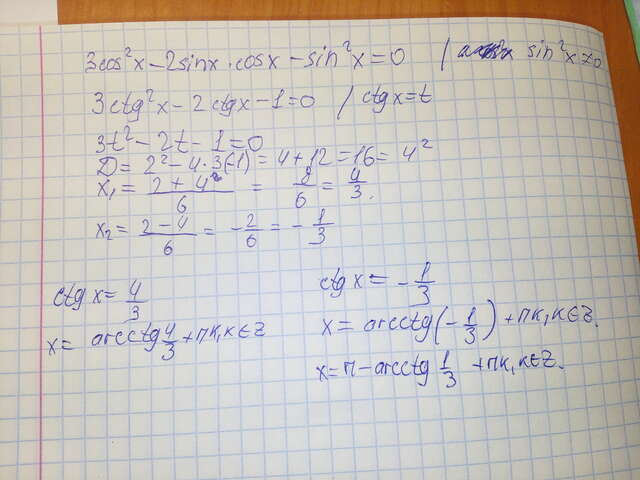 3cos²x - 2sinx·cosx - sin²x = 0 / sin²x ≠ 0
3ctg²x - 2ctgx - 1 = 0 / ctgx = t
3t² - 2t - 1 = 0
D = 2² - 4·3(-1) = 4 + 12 = 16 = 4²
x₁ = (2 + 4)/6 = 8/6 = 4/3.
x₂ = (2 - 4)/6 = -2/6 = -1/3
ctg x = 4/3
x = arcctg 4/3 + πk, k ∈ Z
ctg x = -1/3
x = arcctg(-1/3) + πk, k ∈ Z.
x = π - arcctg 1/3 + πk, k ∈ Z.